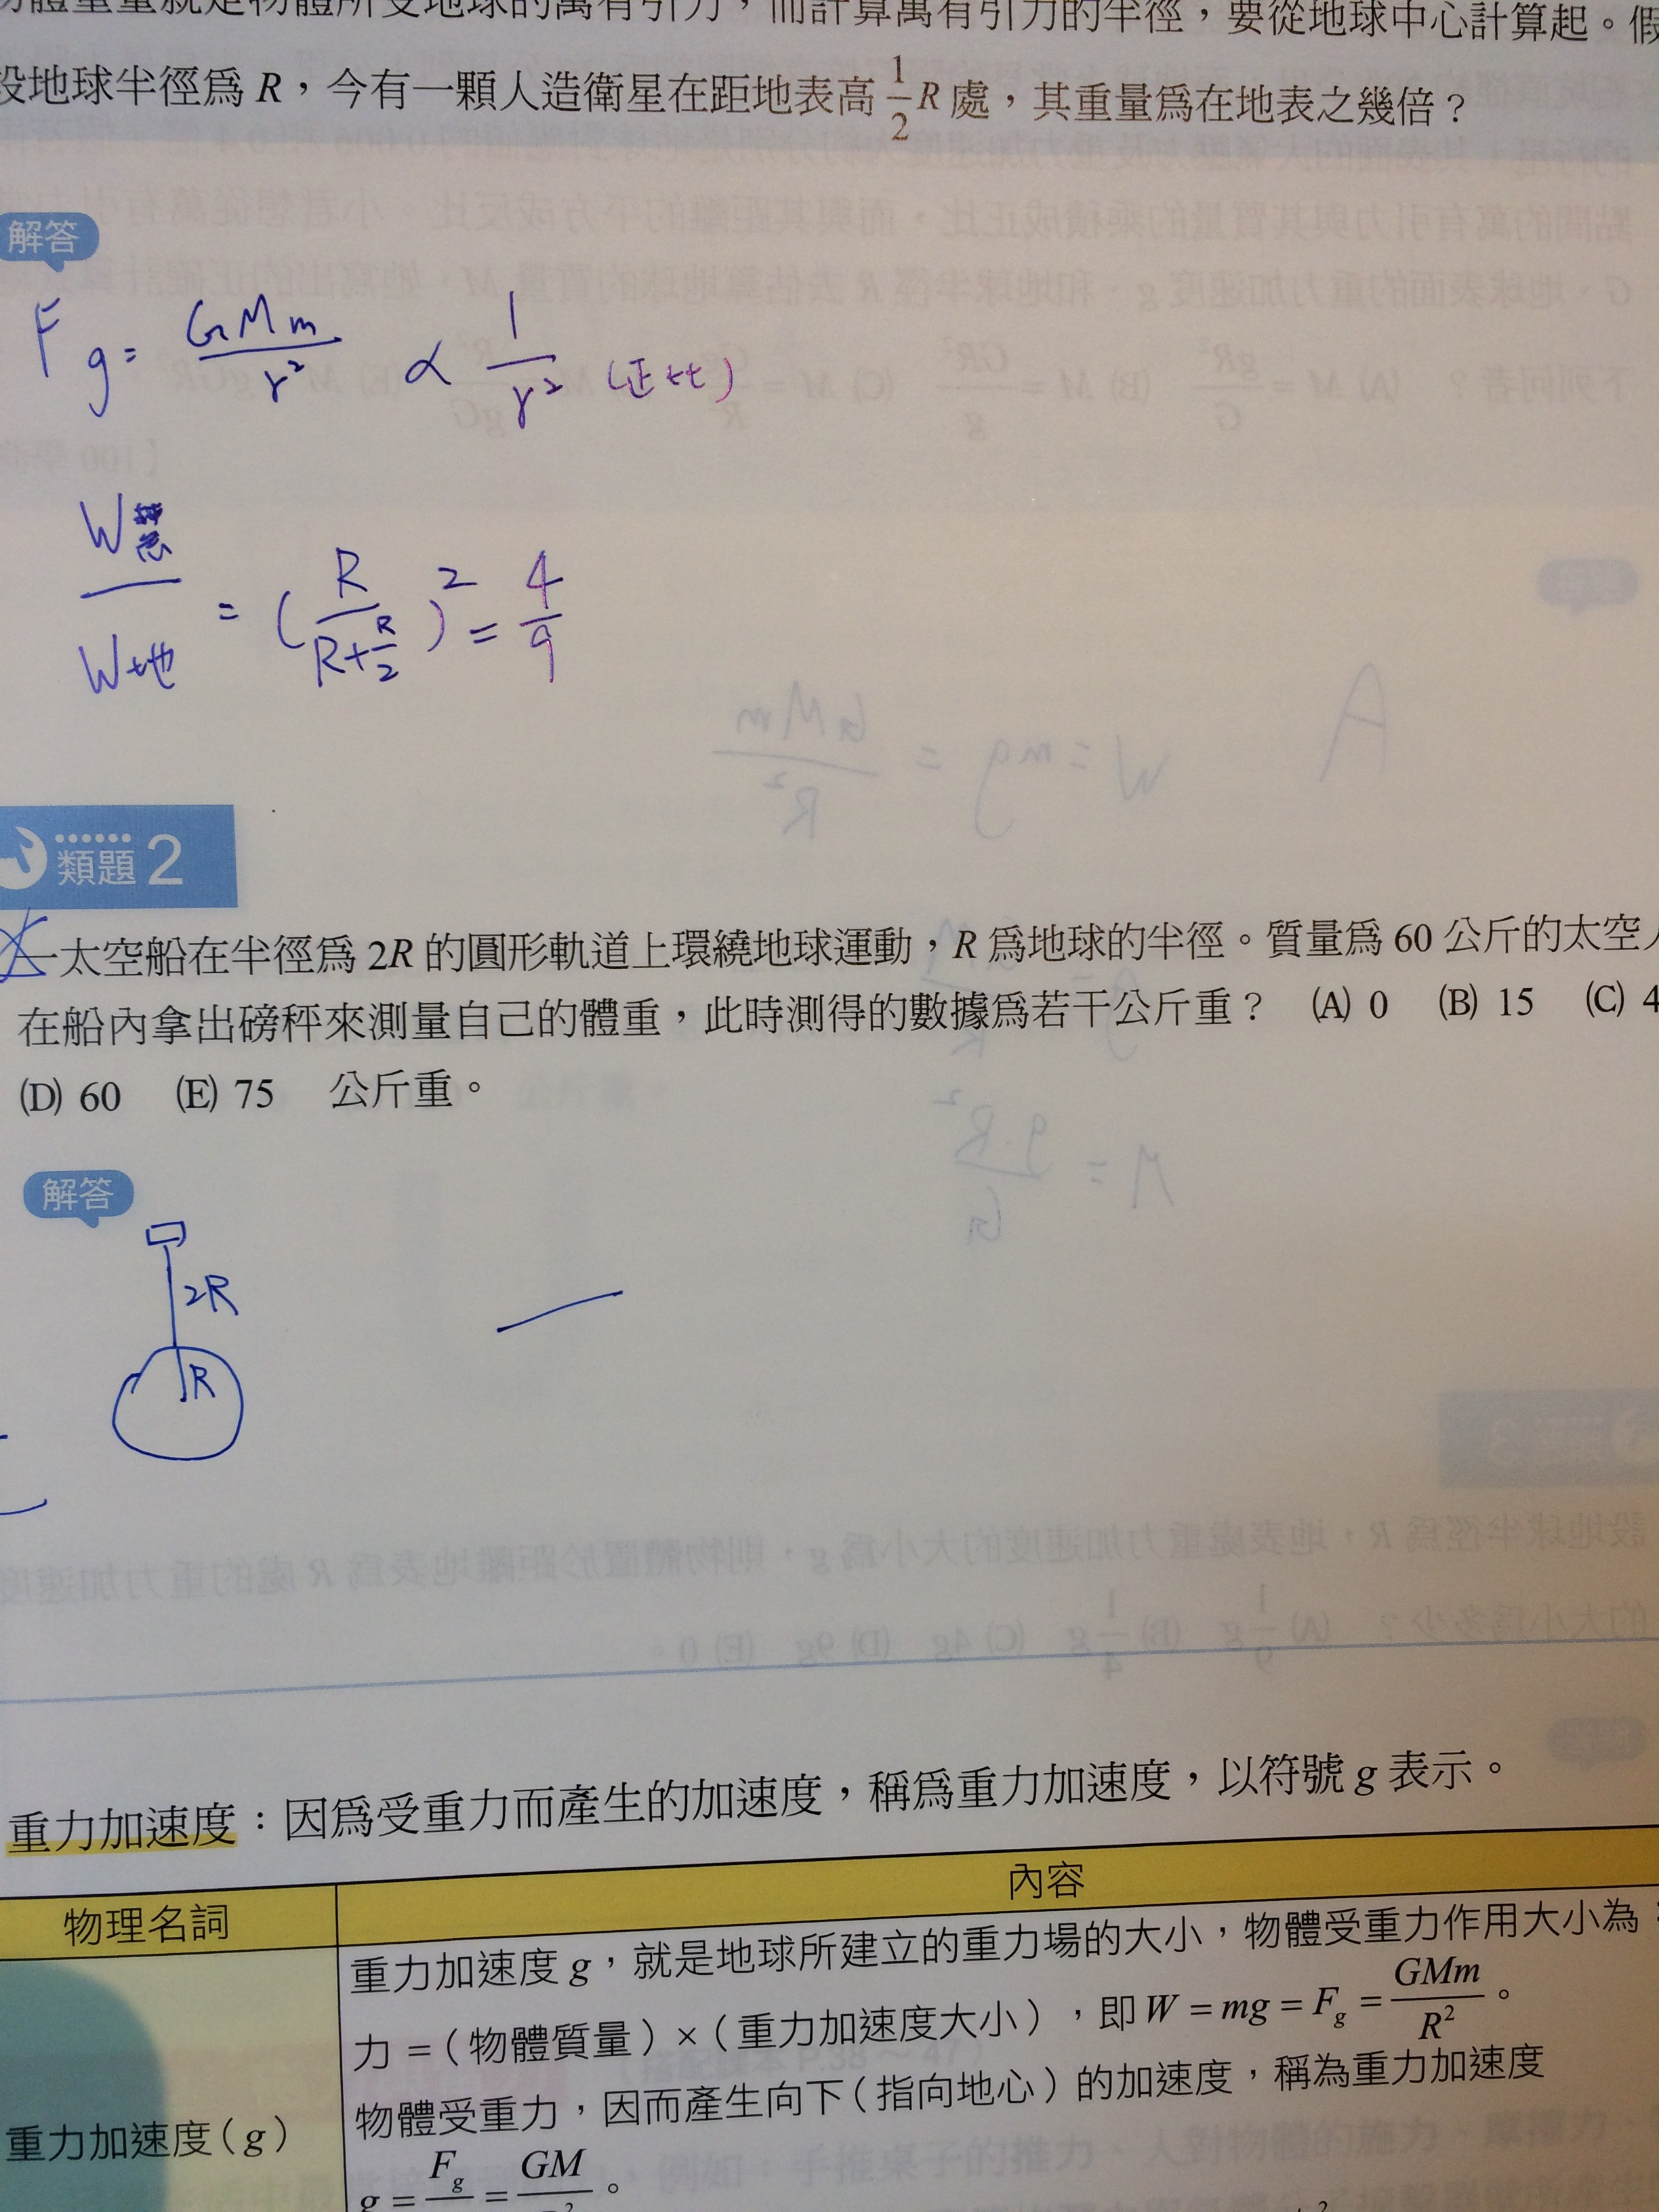 物體重量就是物體所受地球的萬有引力，而計算萬有引力的半徑，要從地球中心計算起。假
設地球半徑爲 R，今有一顆人造衛星在距地表高 1/2 R 處，其重量爲在地表之幾倍？
解答
Fg = GMm/r² ∝ 1/r² (正比)
W/W地 = (R/(R+R/2))² = 4/9
類題 2
一太空船在半徑爲 2R 的圓形軌道上環繞地球運動，R 爲地球的半徑。質量爲 60 公斤的太空人
在船內拿出磅秤來測量自己的體重，此時測得的數據爲若干公斤重？ (A) 0 (B) 15 (C) 4
(D) 60 (E) 75 公斤重。
解答
2R
R
重力加速度：因爲受重力而產生的加速度，稱爲重力加速度，以符號 g 表示。
物理名詞 內容
重力加速度 g，就是地球所建立的重力場的大小，物體受重力作用大小為
力 =（物體質量）×（重力加速度大小），即 W = mg = Fg = GMm/R²。
物體受重力，因而產生向下（指向地心）的加速度，稱為重力加速度
重力加速度（g）
g = Fg = GM 。